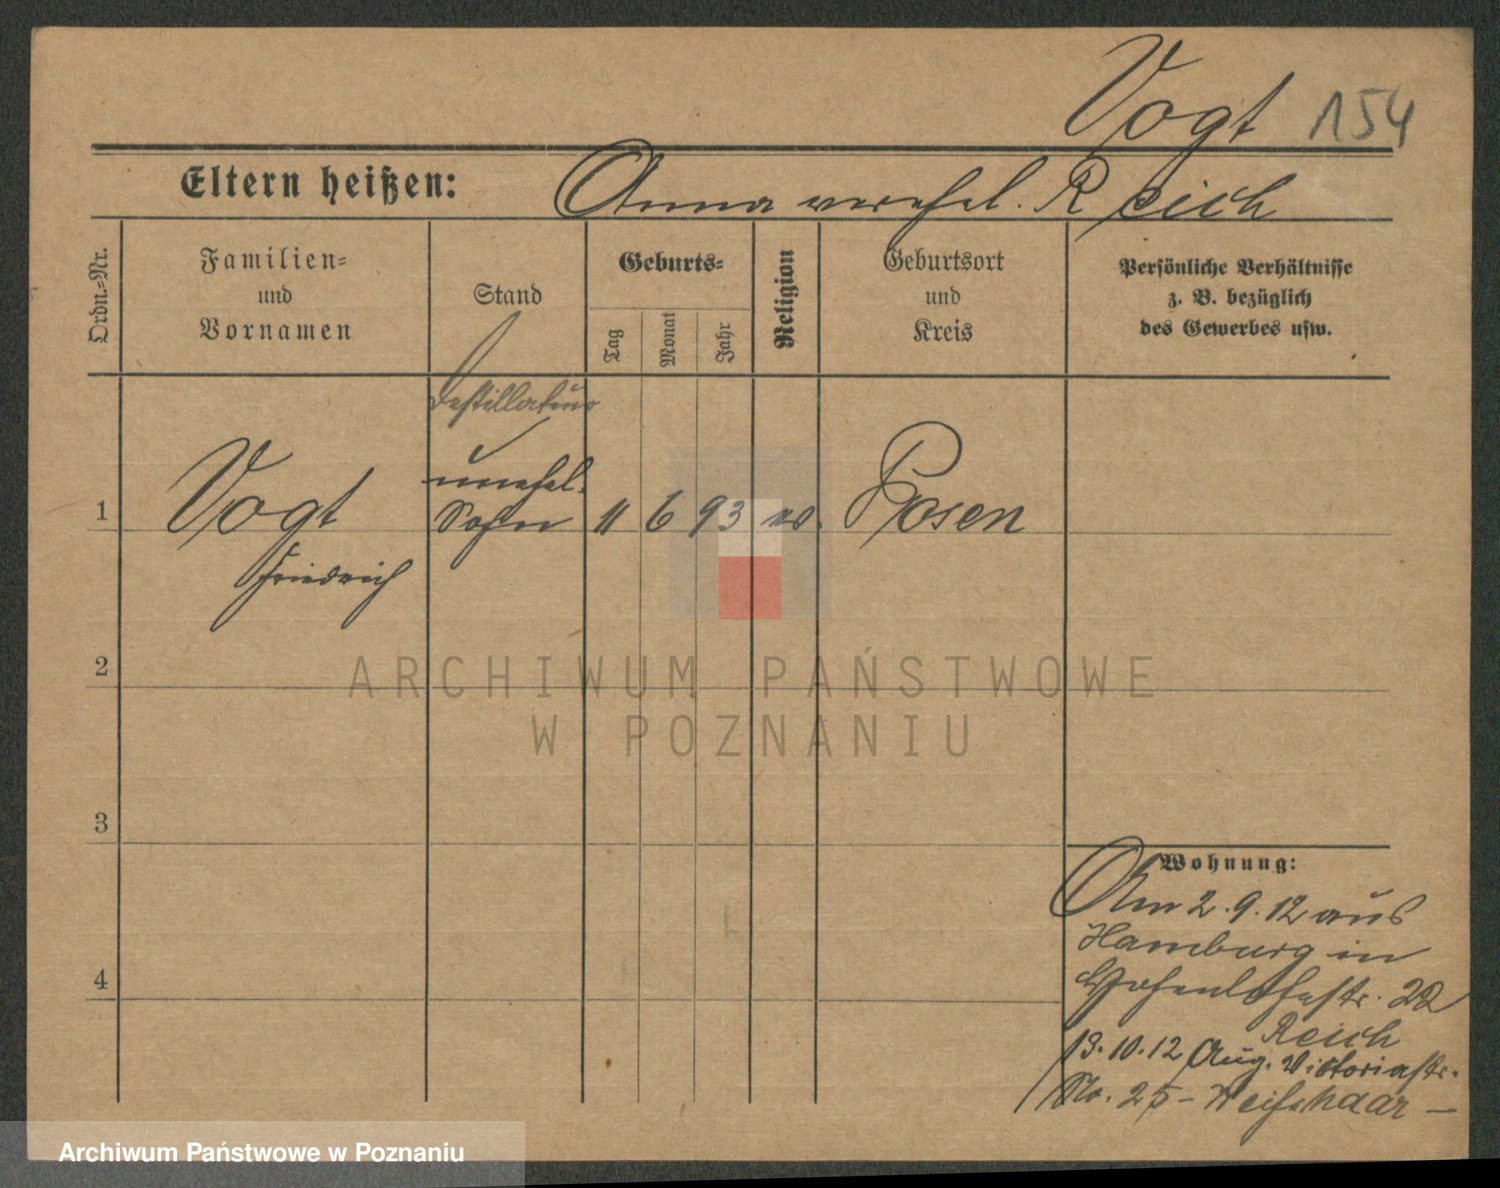 Vogt 154
Eltern heißen: Anna verehel. Reich
Ordn.-Nr.
Familien-
und
Vornamen
Stand
Geburts-
Tag
Monat
Jahr
Religion
Geburtsort
und
Kreis
Persönliche Verhältnisse
z. B. bezüglich
des Gewerbes usw.
Destillateur
unehel.
1 Vogt Sohn 11 6 93 ev. Posen
Friedrich
2
ARCHIWUM PAŃSTWOWE
W POZNANIU
3
Wohnung:
Am 2.9.12 aus
Hamburg in
4
Hohenlohestr. 22
Reich
13.10.12 Aug. Victoriastr.
No. 25 - Weisshaar -
Archiwum Państwowe w Poznaniu